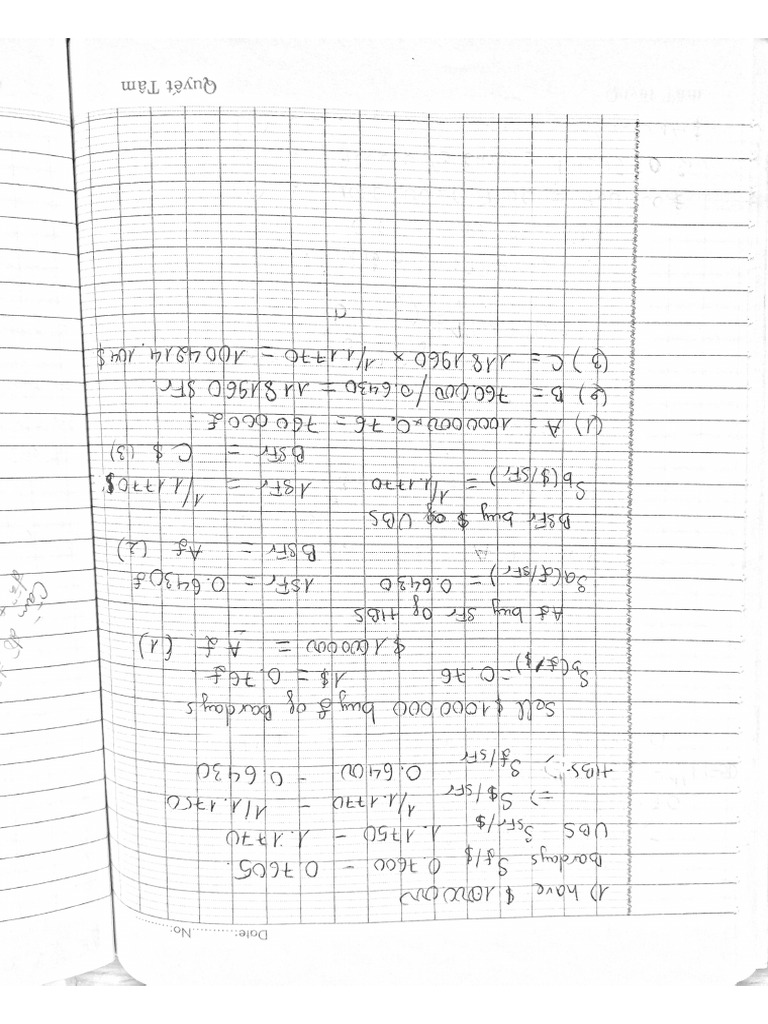 Date:............No:
1) have $ 1000000
Bardays S£/$ 0.7600 - 0.7605.
UBS SSFr/$ 1.1750 - 1.1770
=> S$/SFr 1/1.1770 - 1/1.1750
HBS => S£/SFr 0.6400 - 0.6430
Sell $1.000 000 buy £ of Bardays
Sb(£/$) = 0.76 1$ = 0.76£
$ 1000000 = A £ (1)
A£ buy SFr of HBS
Sa(£/SFr) = 0.6430 1SFr = 0.6430£
BSFr = A£ (2)
BSFr buy $ of UBS
Sb($/SFr) = 1/1.1770 1SFr = 1/1.1770$
BSFr = C $ (3)
(1) A = 1000000 x 0.76 = 760 000 £.
(2) B = 760000/0.6430 = 1181960 SFr.
(3) C = 1181960 x 1/1.1770 = 1004214.104$
Quyết Tâm
Cần